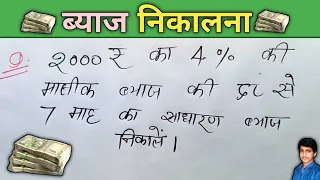 ब्याज निकालना
Q. 2000 रु का 4% की
मासीक ब्याज की दर से
7 माह का साधारण ब्याज
निकालें।